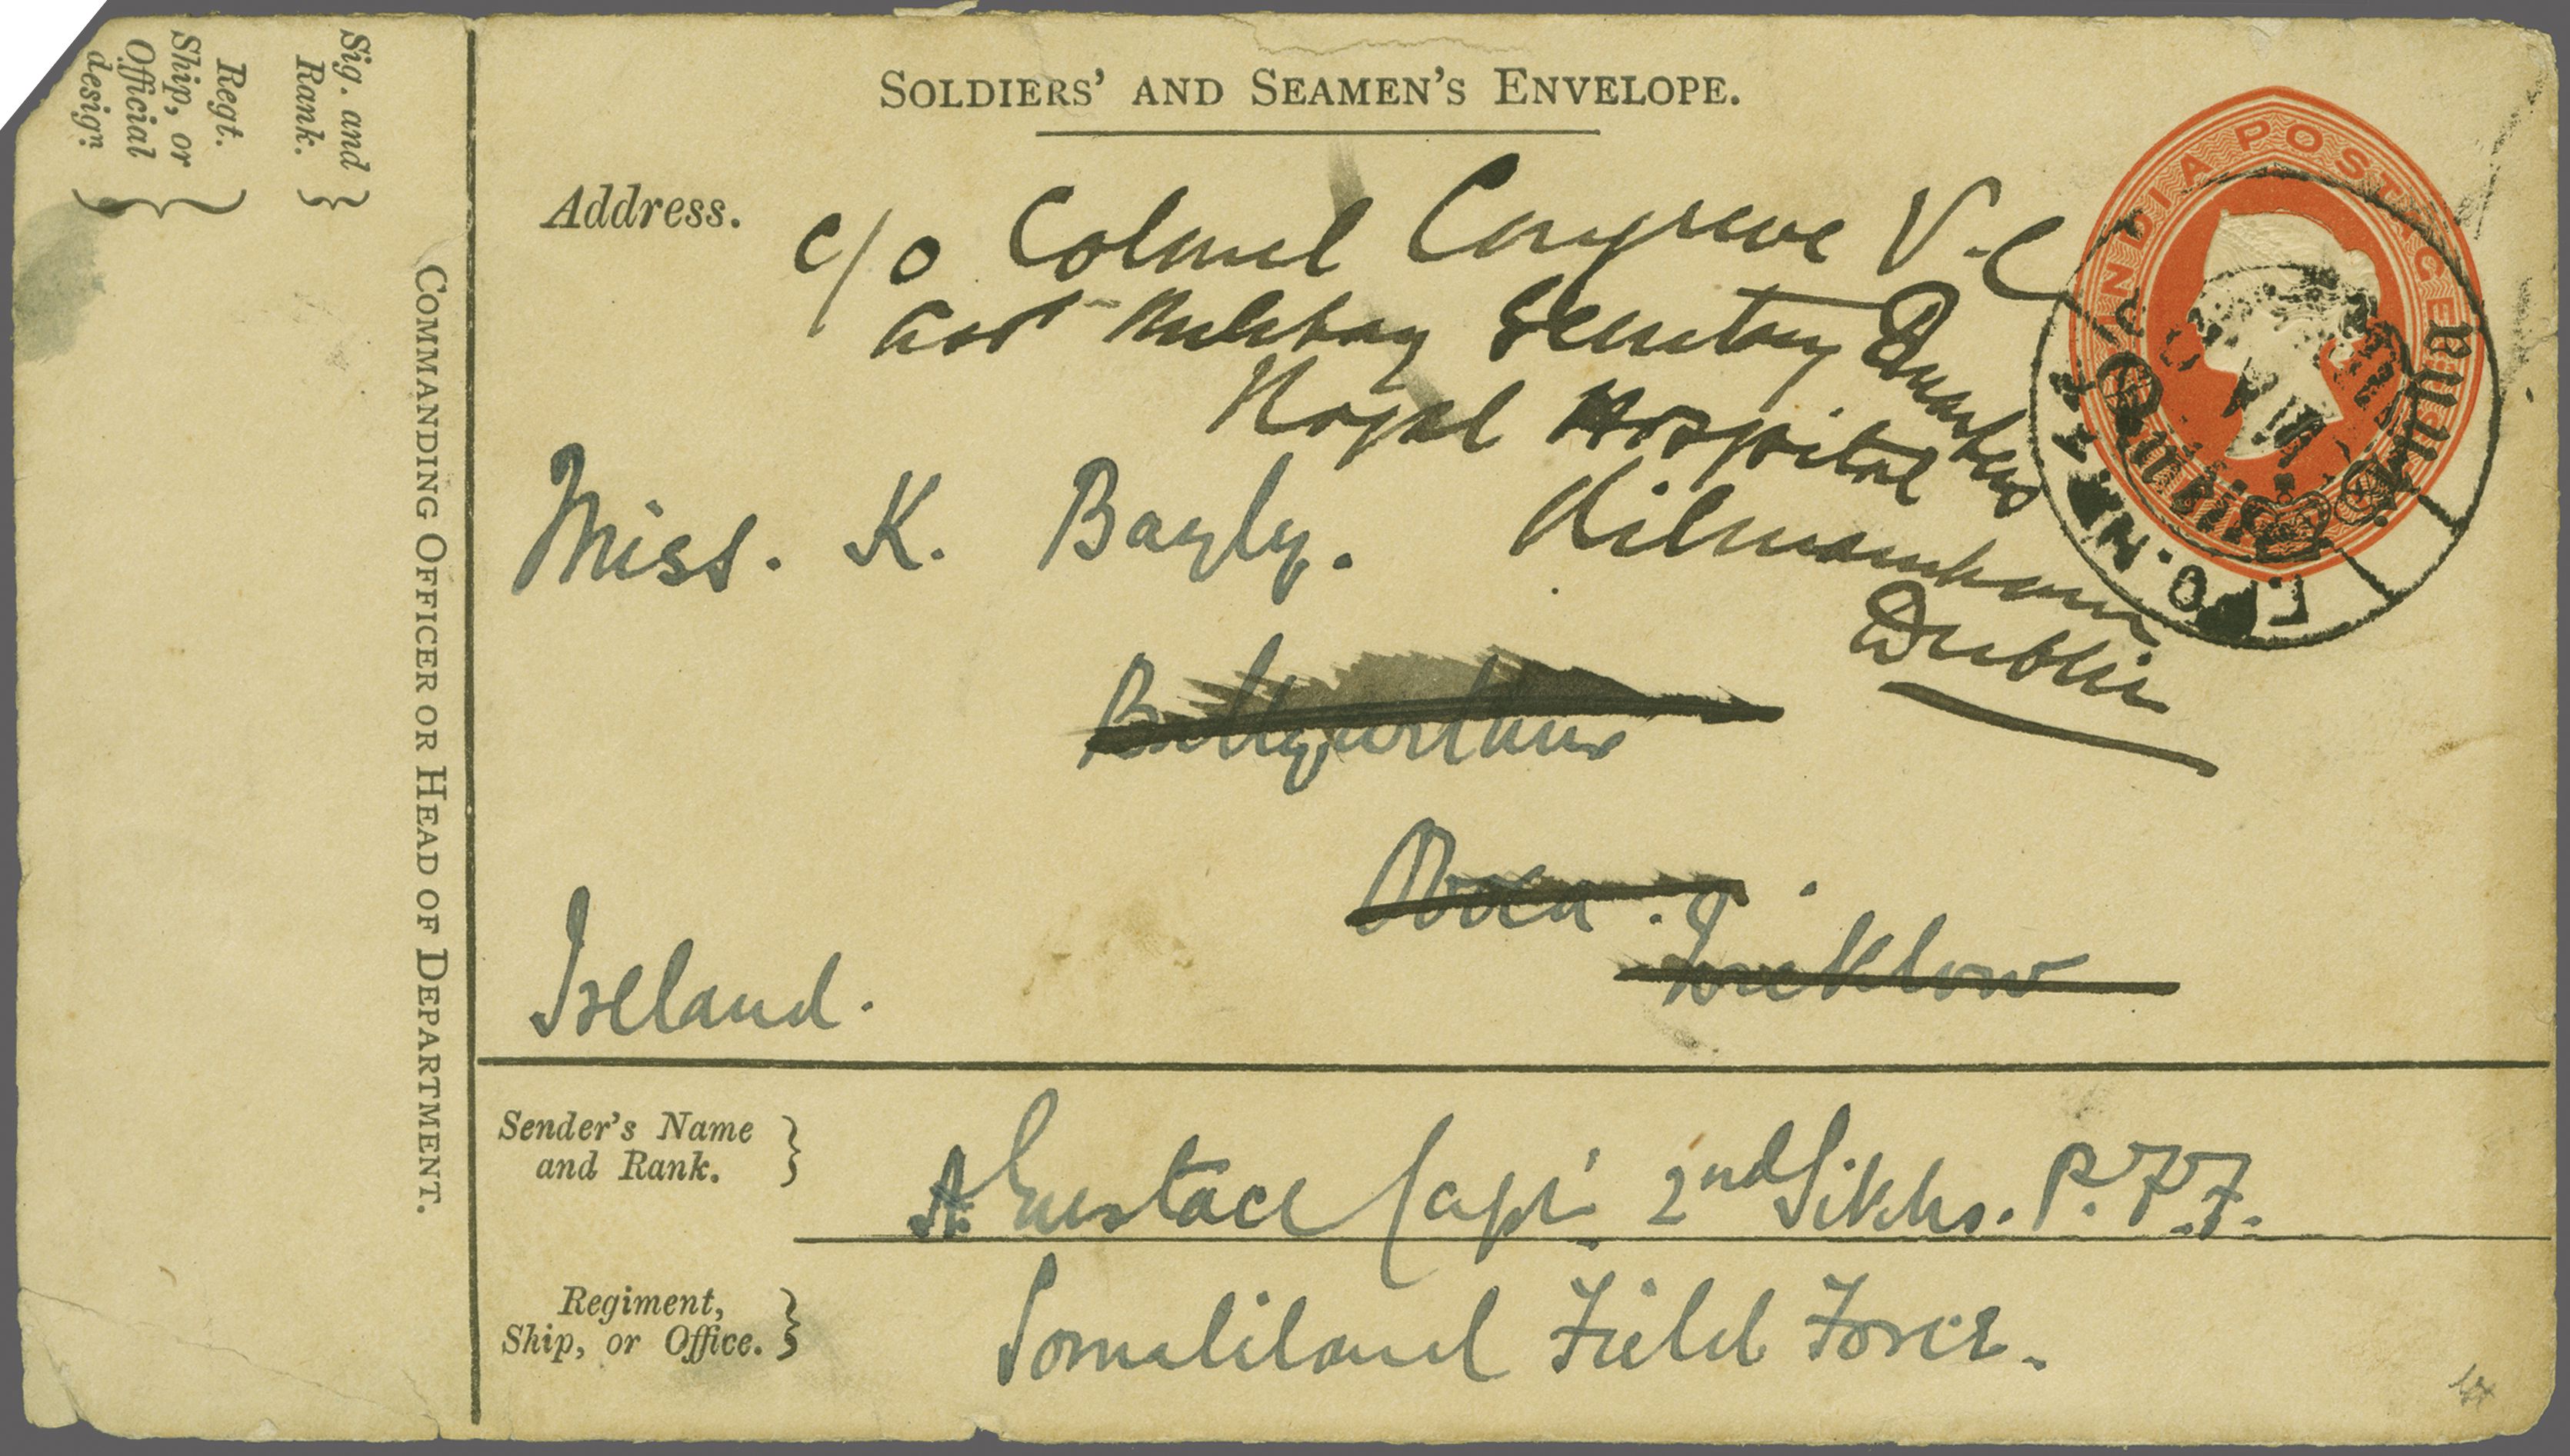 Sig. and
Rank. }
Regt.
Ship, or
Official
design. }
COMMANDING OFFICER OR HEAD OF DEPARTMENT.
SOLDIERS' AND SEAMEN'S ENVELOPE.
INDIA POSTAGE
Address.
c/o Colonel Congreve V-C
Military Secretary Quarters
Royal Hospital
Kilmainham
Dublin
Miss. K. Bayly.
Ballyarthur
Ovoca.
Wicklow
Ireland.
Sender's Name
and Rank. }
A. Eustace Capt. 2nd Sikhs. P.F.F.
Regiment,
Ship, or Office. }
Somaliland Field Force.